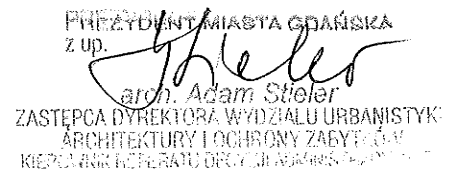 PREZYDENT MIASTA GDAŃSKA
z up.
arch. Adam Stieler
ZASTĘPCA DYREKTORA WYDZIAŁU URBANISTYK
ARCHITEKTURY I OCHRONY ZABYTKÓW
KIEROWNIK REFERATU DECYZJI